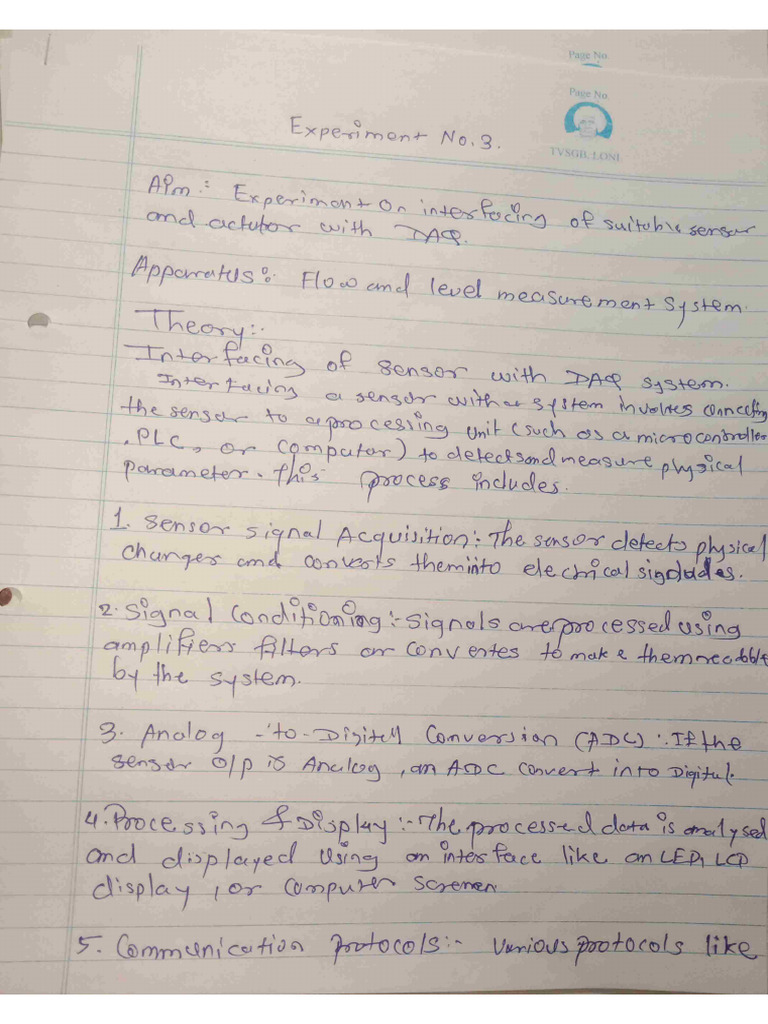 Page No.
Page No
TVSGIL LONI
Experiment No. 3.
Aim : Experiment on interfacing of suitable sensor
and actutor with DAQ.
Apparatus :- Flow and level measurement system.
Theory :-
Interfacing of sensor with DAQ system.
Interfacing a sensor with a system involves connecting
the sensor to a processing unit (such as a microcontroller
, PLC, or computer) to detect and measure physical
parameter. this process includes.
1. Sensor signal Acquisition :- The sensor detects physical
changes and converts them into electrical
2. Signal Conditioning :- Signals are processed using
amplifiers filters or convertes to make them readable
by the system.
3. Analog -to- Digitall Conversion (ADC) :. If the
sensor O/P is Analog , an ADC convert into Digital.
4. Processing & Display :- The processed data is analysed
and displayed using an interface like an LED, LCD
display , or computer
5. Communication protocols :- various protocols like